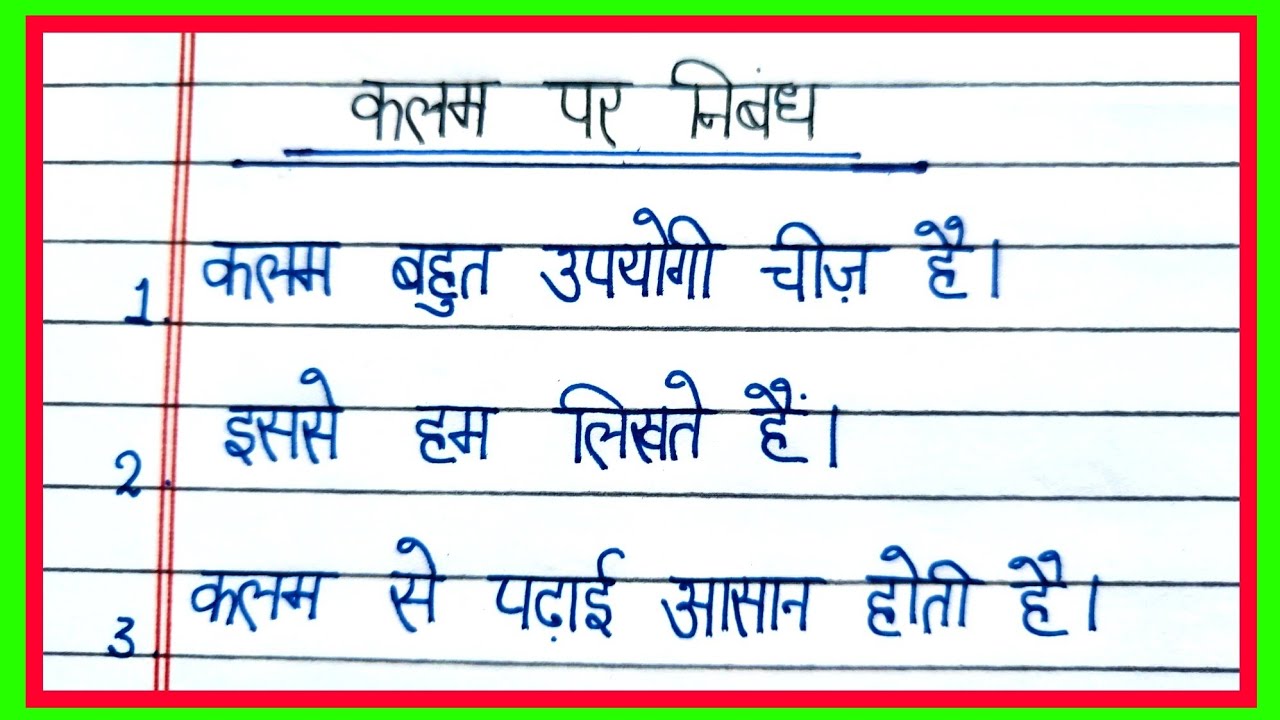 कलम पर निबंध
1. कलम बहुत उपयोगी चीज़ है।
2. इससे हम लिखते हैं।
3. कलम से पढ़ाई आसान होती है।